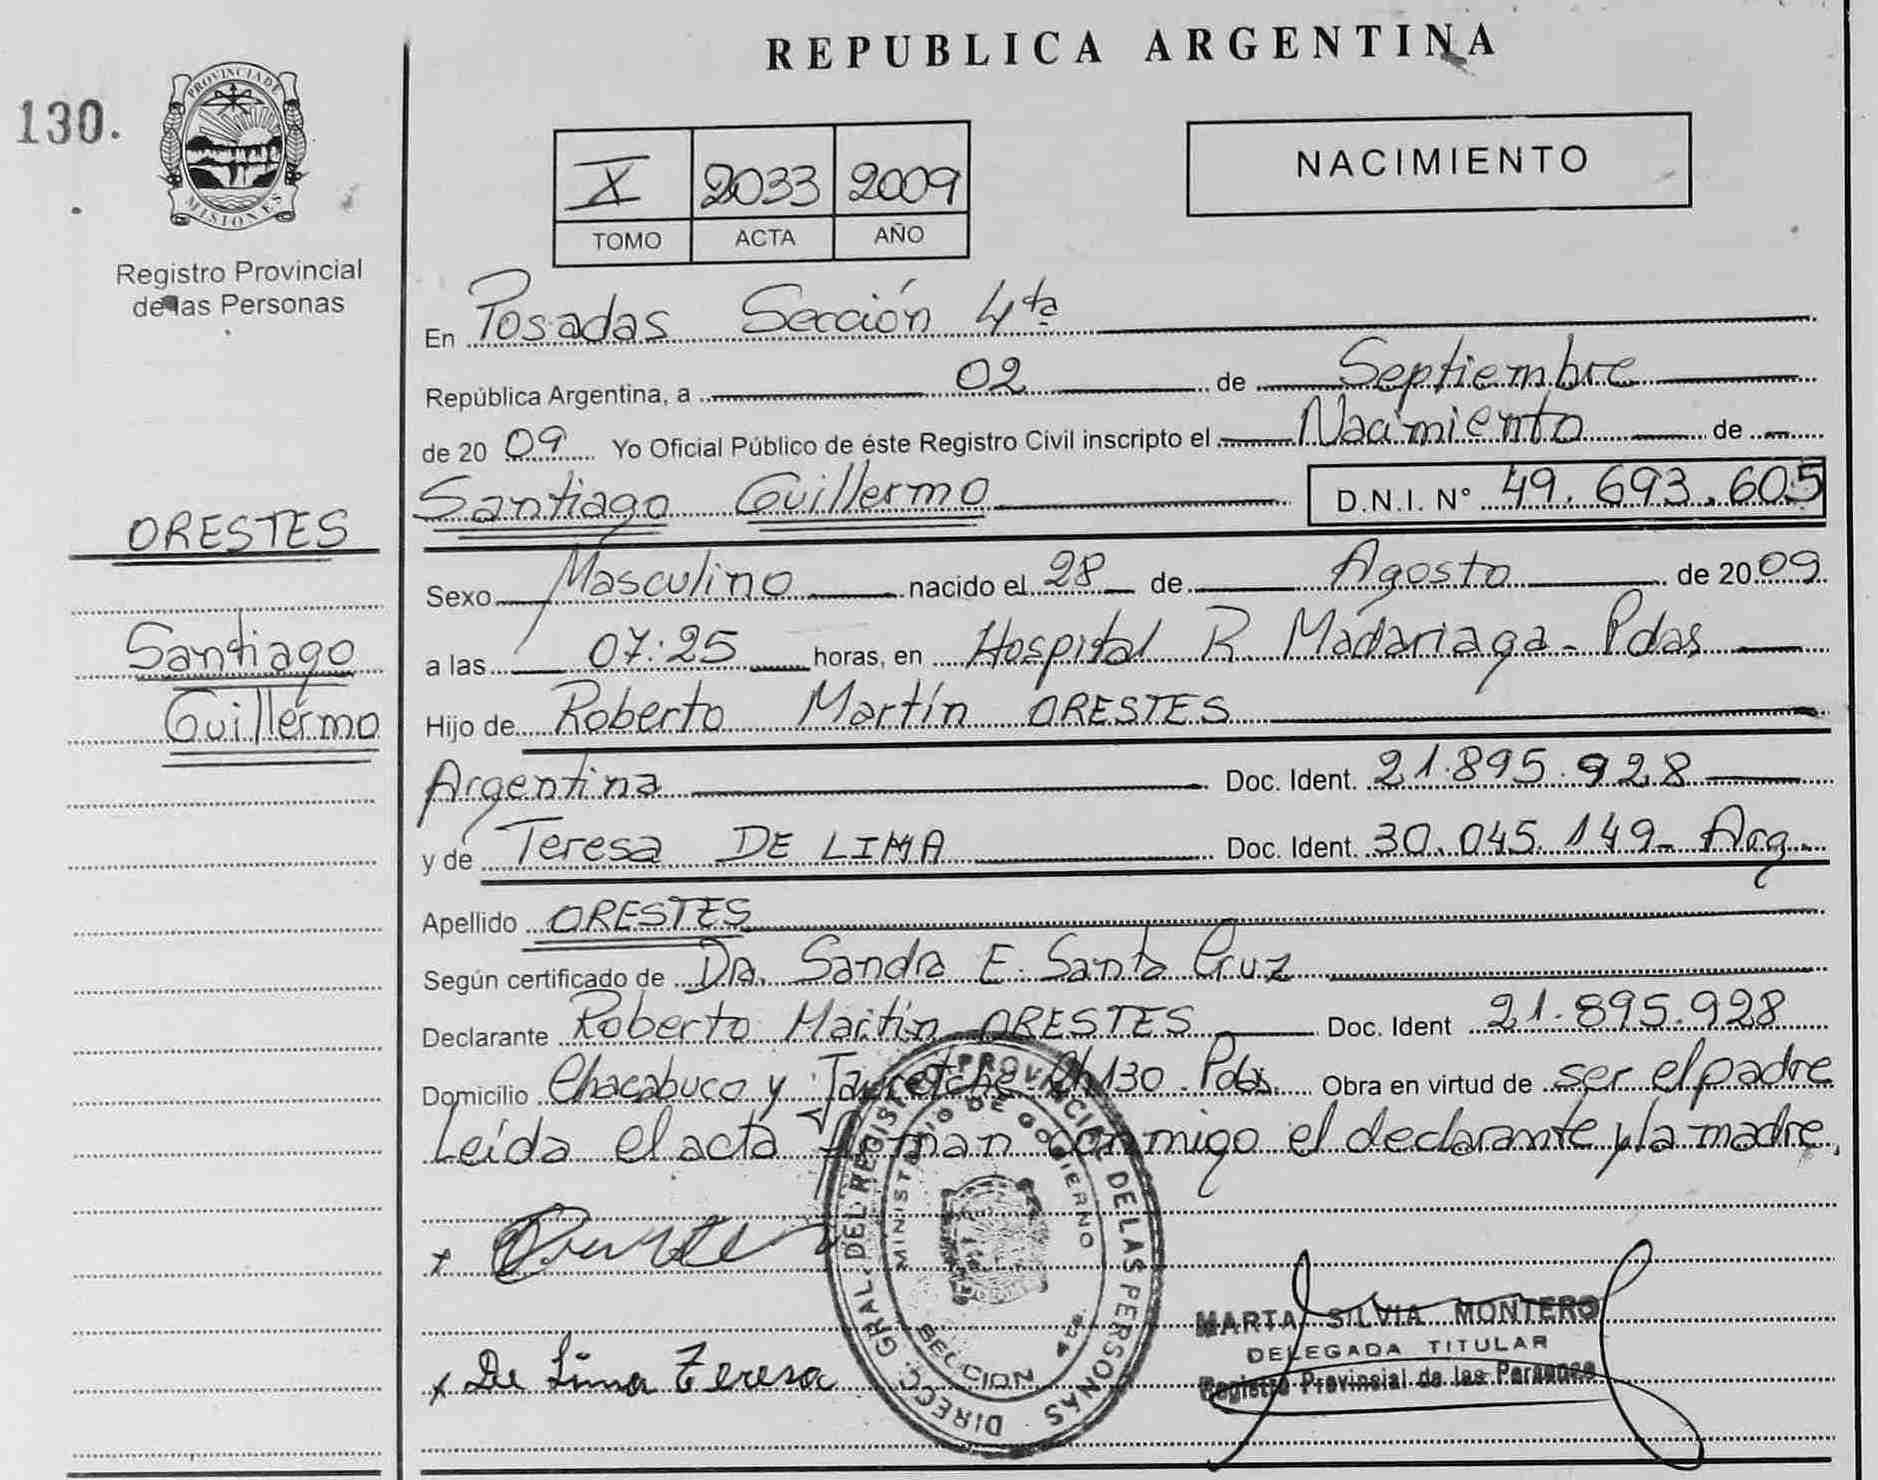 REPUBLICA ARGENTINA
130.
PROVINCIA DE
MISIONES
Registro Provincial
de las Personas
X 2033 2009
TOMO ACTA AÑO
NACIMIENTO
ORESTES
Santiago
Guillermo
En Posadas Sección 4ta
República Argentina, a 02 de Septiembre
de 2009 Yo Oficial Público de éste Registro Civil inscripto el Nacimiento de
Santiago Guillermo D.N.I. N° 49.693.605
Sexo Masculino nacido el 28 de Agosto de 2009
a las 07:25 horas, en Hospital R. Madariaga - Pdas
Hijo de Roberto Martín ORESTES
Argentina Doc. Ident. 21.895.928
y de Teresa DE LIMA Doc. Ident. 30.045.149- Arg.
Apellido ORESTES
Según certificado de Dra. Sandra E. Santa Cruz
Declarante Roberto Martín ORESTES Doc. Ident 21.895.928
Domicilio Chacabuco y Jauretche Ch130 Pdas. Obra en virtud de ser el padre
Leída el acta firman conmigo el declarante y la madre,
DIRECC. GRAL. DEL REGISTRO PROVINCIAL DE LAS PERSONAS
MINISTERIO DE GOBIERNO
SECCION 4ta.
x
x De Lima Teresa
MARTA SILVIA MONTERO
DELEGADA TITULAR
Registro Provincial de las Personas